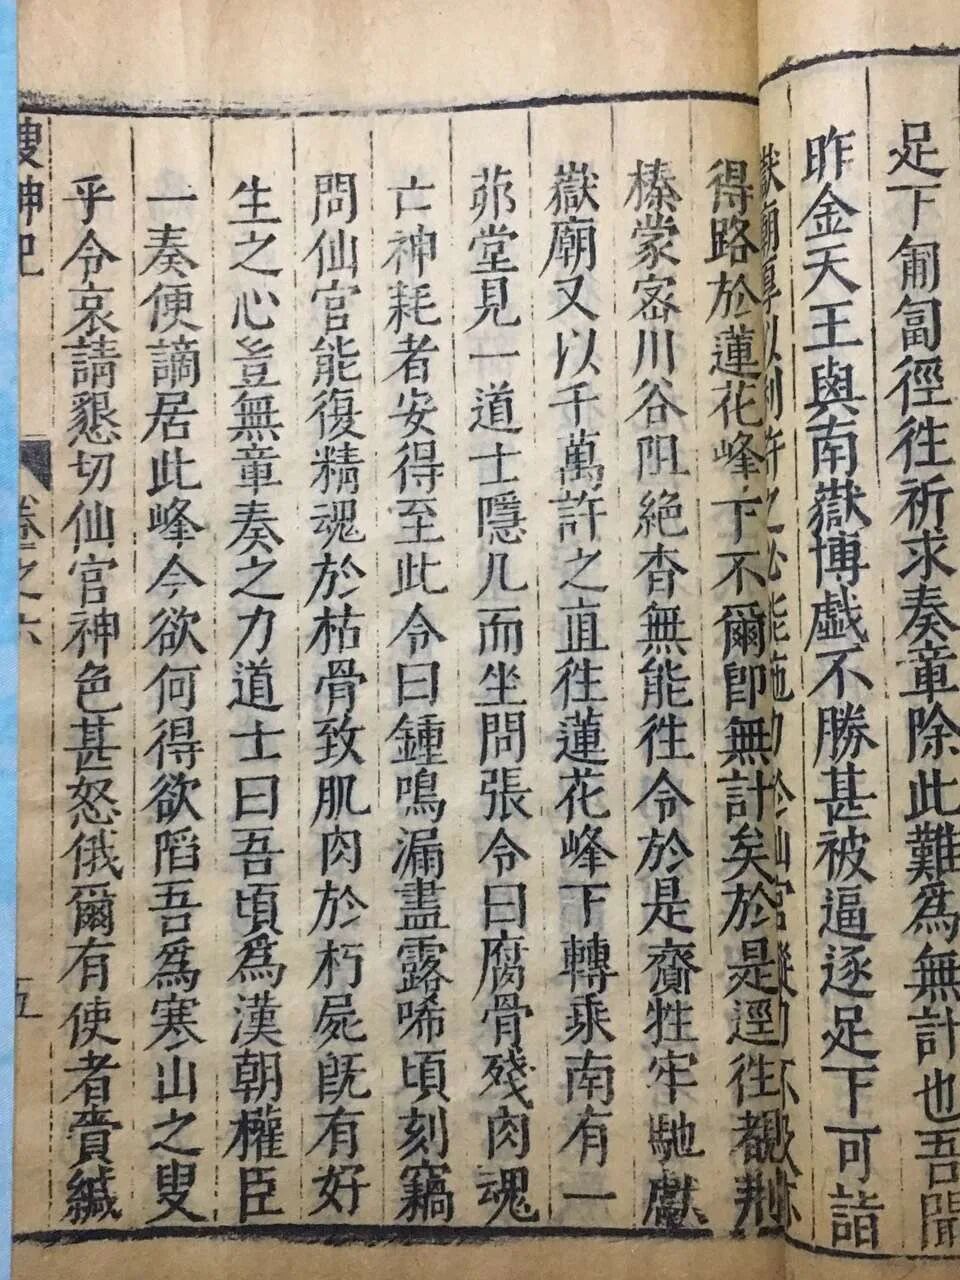 足下匍匐徑徃祈求奏章除此難爲無計也吾聞
昨金天王與南嶽博戲不勝甚被逼逐足下可詣
嶽廟厚以利許之必能施力於仙官縱力不
得路於蓮花峰下不爾卽無計矣於是逕徃荆
榛蒙宻川谷阻絶杳無能徃令於是齎牲牢馳獻
嶽廟又以千萬許之直徃蓮花峰下轉乘南有一
茆堂見一道士隱几而坐問張令曰腐骨殘肉魂
亡神耗者安得至此令曰鍾鳴漏盡露晞頃刻竊
問仙官能復精魂於枯骨致肌肉於朽屍旣有好
生之心豈無章奏之力道士曰吾頃爲漢朝權臣
一奏便謫居此峰今欲何得欲陷吾爲寒山之叟
乎令哀請懇切仙官神色甚怒俄爾有使者賫緘
搜神記 卷之六 五